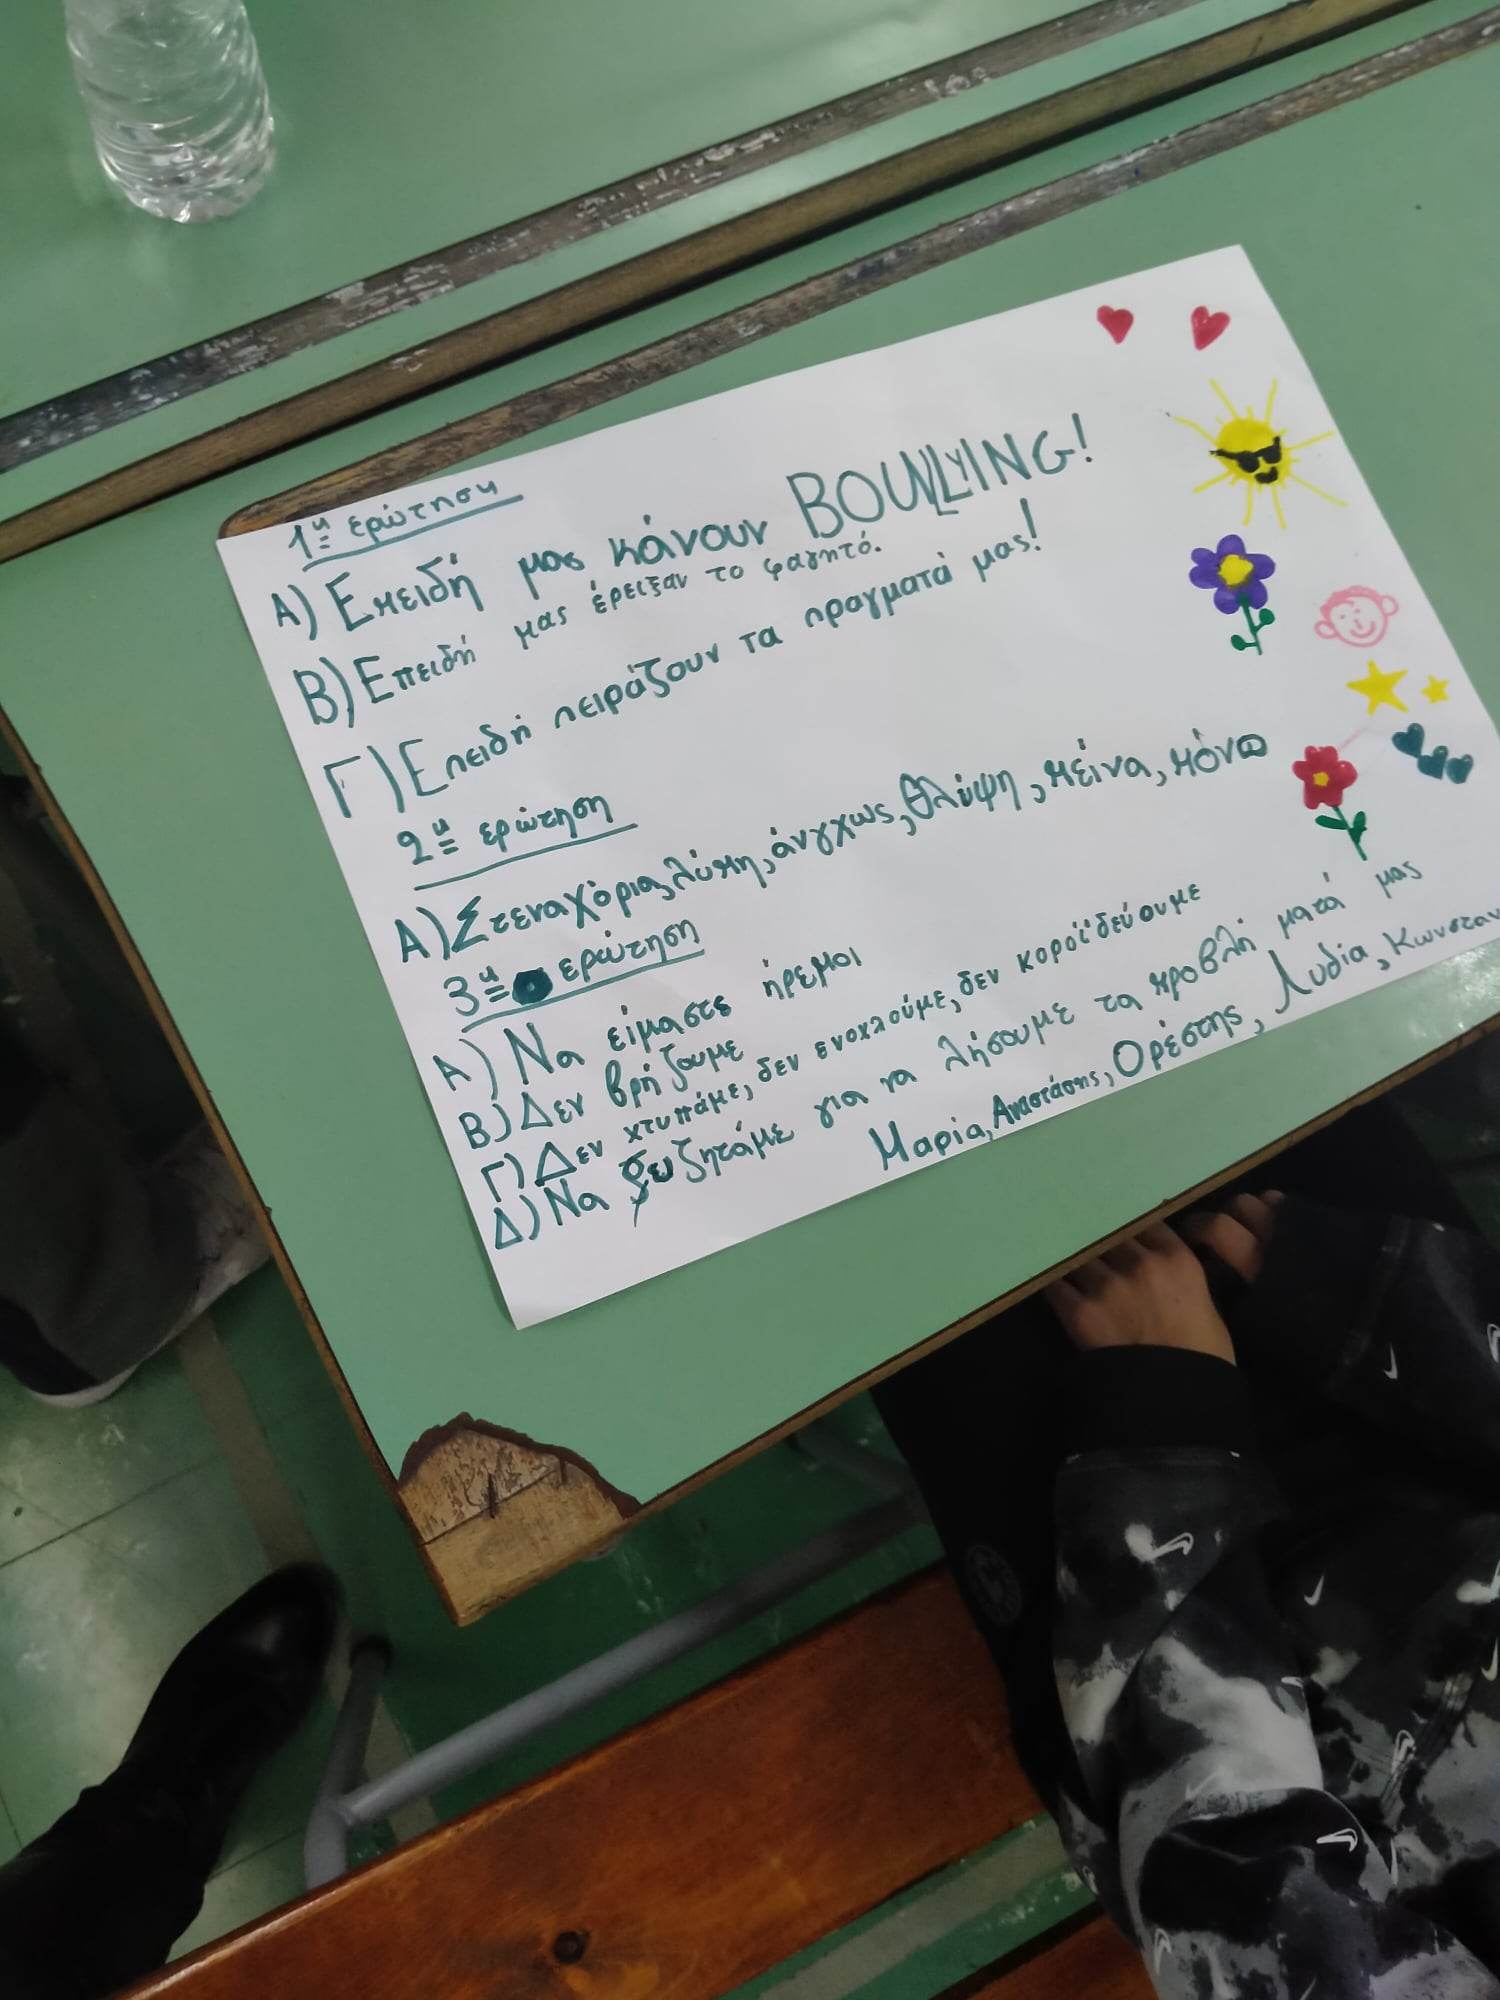 1η ερώτηση
Α) Επειδή μας κάνουν BOULLYING!
Β) Επειδή μας έρειξαν το φαγητό.
Γ) Επειδή πειράζουν τα πραγματά μας!
2η ερώτηση
Α) Στεναχόρια, λύπη, άνγχως, θλύψη, πείνα, πόνο
3η ερώτηση
Α) Να είμαστε ήρεμοι
Β) Δεν βρήζουμε
Γ) Δεν χτυπάμε, δεν ενοχλούμε, δεν κοροϊδεύουμε
Δ) Να συζητάμε για να λήσουμε τα προβλήματά μας
Μαρία, Αναστάσης, Ορέστης, Λυδία, Κωνσταν